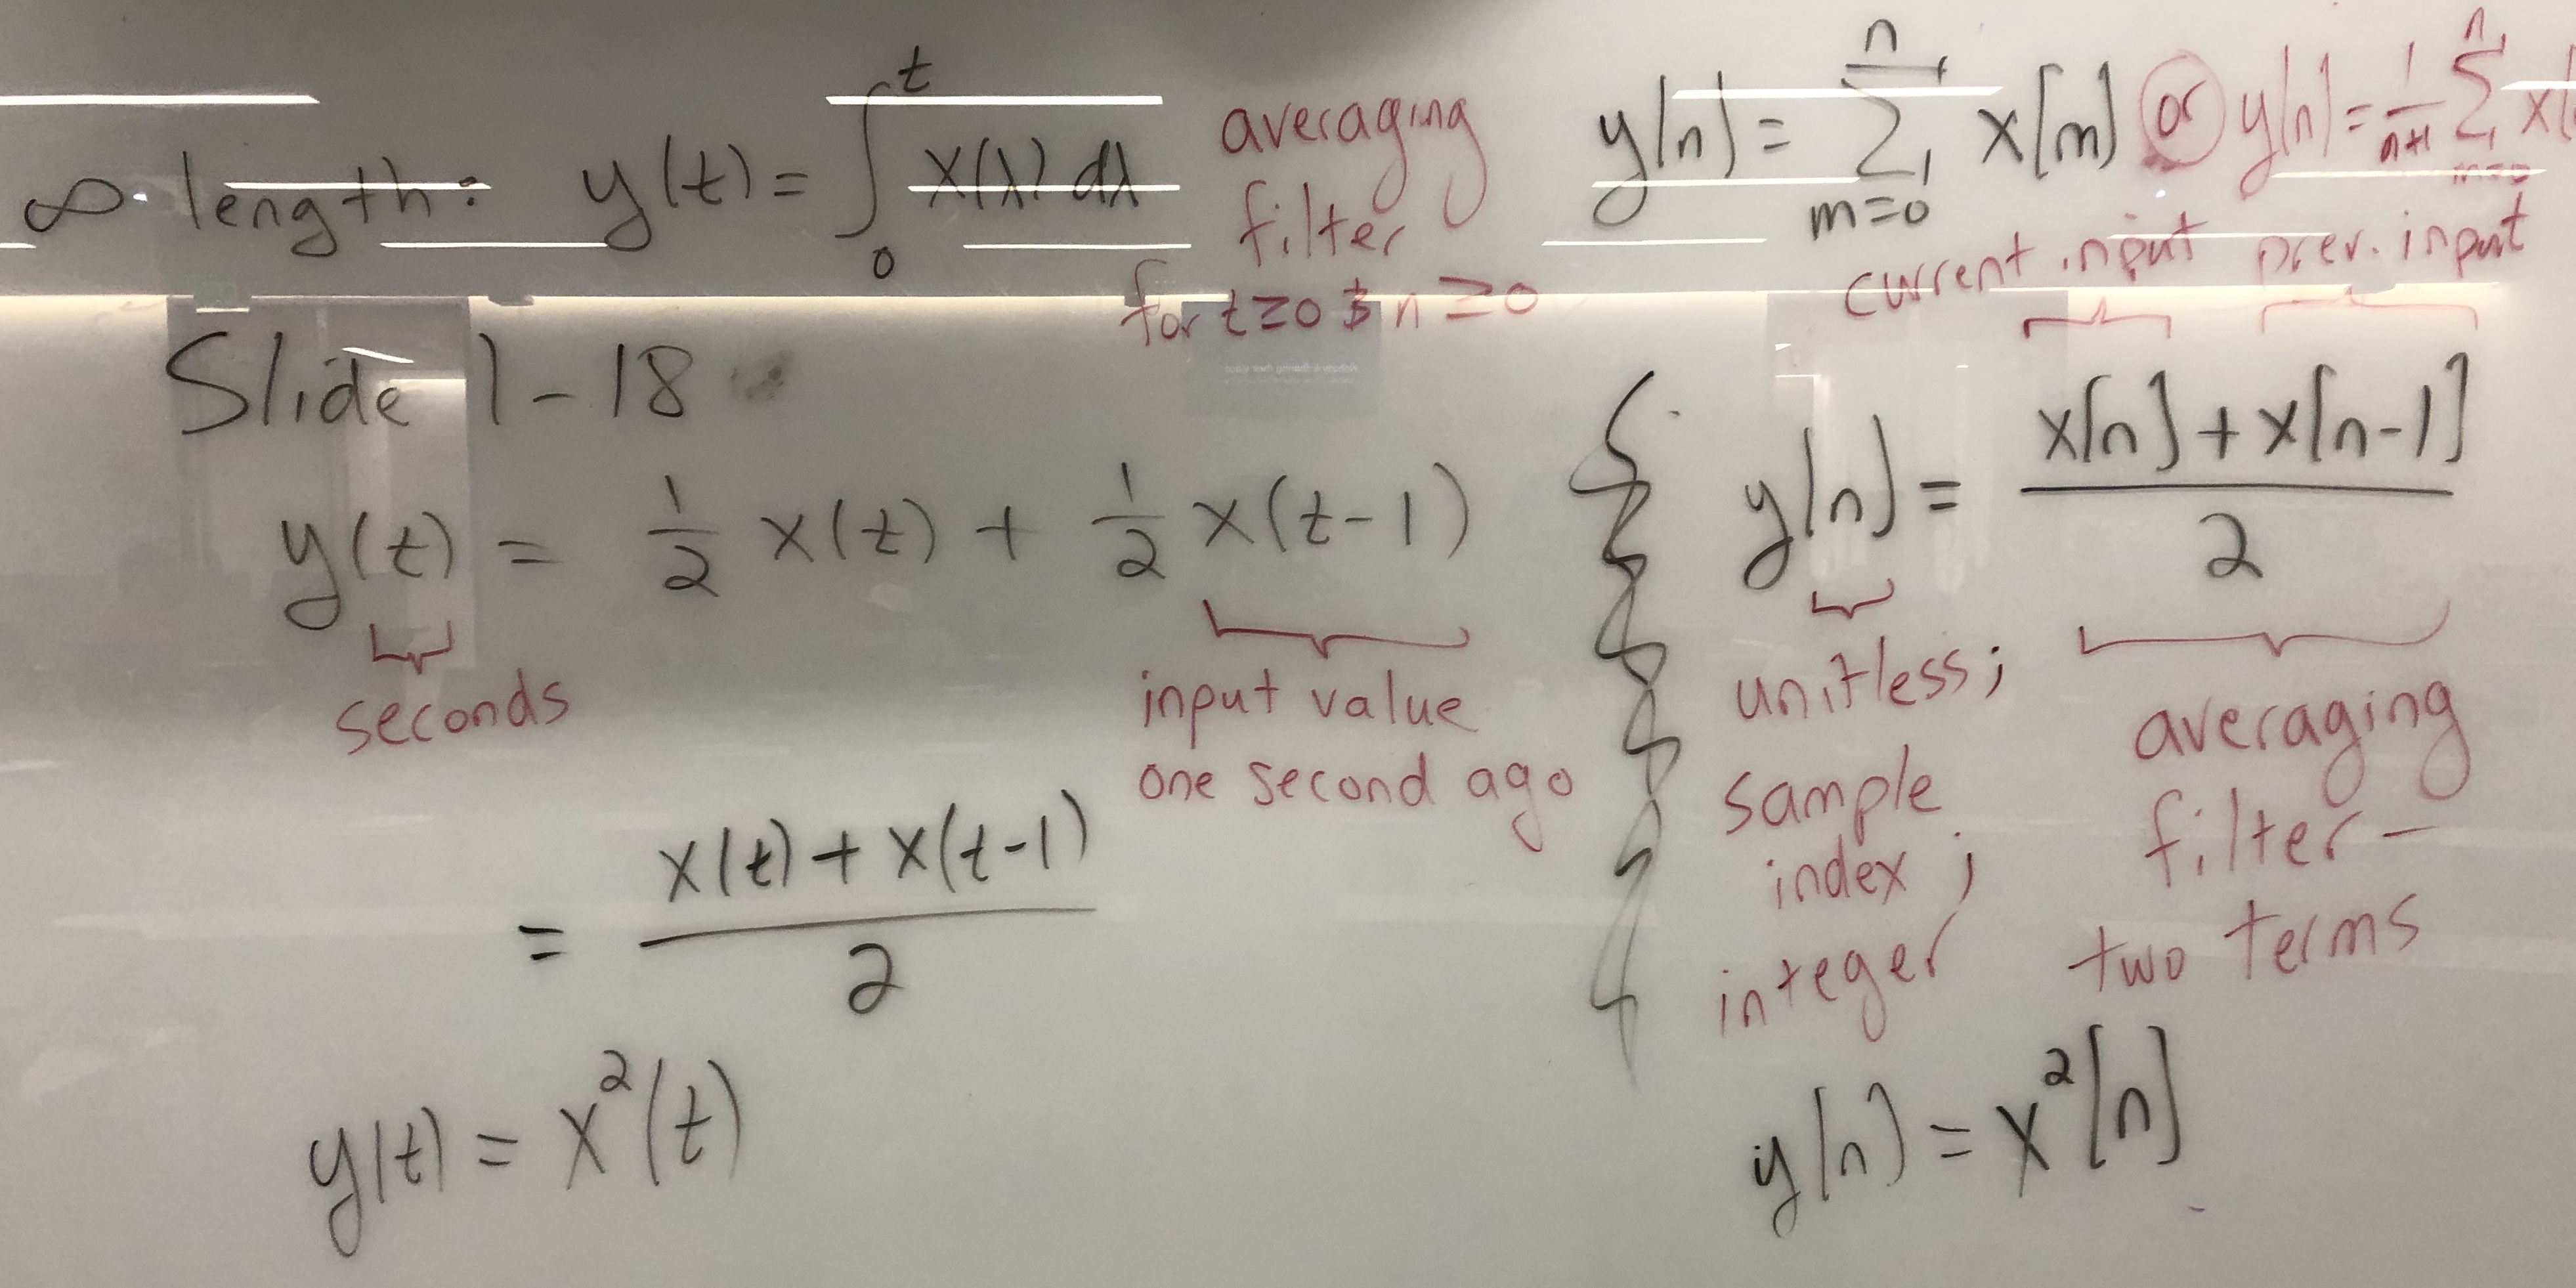 ∞ length: y(t) = ∫₀ᵗ x(λ) dλ
averaging
filter
for t ≥ 0 & n ≥ 0
y[n] = Σ_{m=0}^{n} x[m] or y[n] = 1/(n+1) Σ_{m=0}^{n} x[
current input prev. input
Slide 1-18
y(t) = 1/2 x(t) + 1/2 x(t-1)
seconds
input value
one second ago
= (x(t) + x(t-1))/2
y(t) = x²(t)
y[n] = (x[n] + x[n-1])/2
unitless;
sample
index;
integer
averaging
filter -
two terms
y[n] = x²[n]